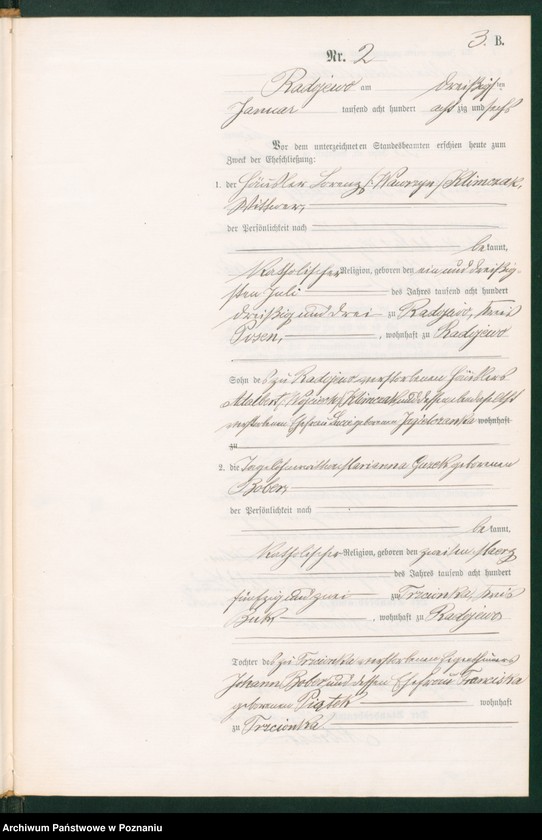 3. B.
Nr. 2
Radojewo am dreißigsten
Januar tausend acht hundert acht zig und sechs
Vor dem unterzeichneten Standesbeamten erschien heute zum
Zweck der Eheschließung:
1. der Häusler Lorenz /:Wawrzyn:/ Klimczak,
Wittwer,
der Persönlichkeit nach
bekannt,
katholischer Religion, geboren den ein und dreißig-
sten Juli des Jahres tausend acht hundert
dreißig und drei zu Radojewo, Kreis
Posen, , wohnhaft zu Radojewo
Sohn des zu Radojewo verstorbenen Häuslers
Adalbert /:Wojciech:/ Klimczak und dessen
verstorbenen Ehefrau geborenen wohnhaft
zu
2. die Marianna geborenen
Bober,
der Persönlichkeit nach
bekannt,
katholischer Religion, geboren den zweiten März
des Jahres tausend acht hundert
fünfzig und zwei zu Trzcionka, Kreis
Buk , wohnhaft zu Radojewo
Tochter des zu Trzcionka verstorbenen Eigenthümers
Johann Bober und dessen Ehefrau Franciska
geborenen Piątek wohnhaft
zu Trzcionka
Archiwum Państwowe w Poznaniu